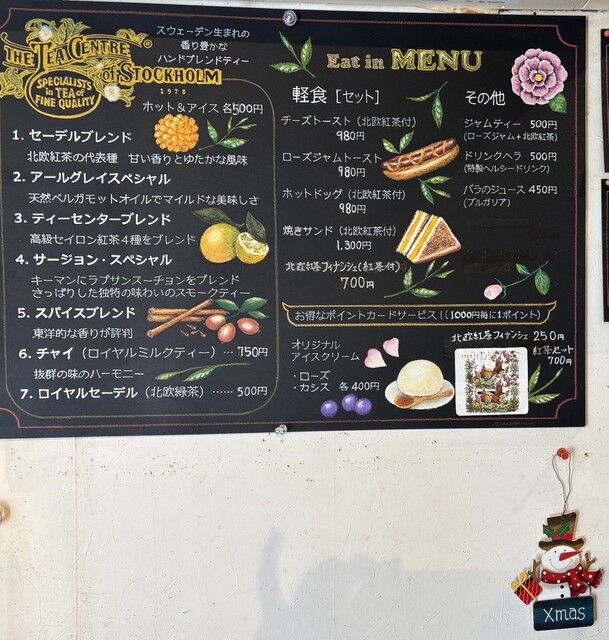 THE TEA CENTRE ®
of STOCKHOLM
SPECIALISTS
in TEA of
FINE QUALITY
1978
スウェーデン生まれの
香り豊かな
ハンドブレンドティー
ホット&アイス 各500円
1. セーデルブレンド
北欧紅茶の代表種 甘い香りとゆたかな風味
2. アールグレイスペシャル
天然ベルガモットオイルでマイルドな美味しさ
3. ティーセンターブレンド
高級セイロン紅茶4種をブレンド
4. サージョン・スペシャル
キーマンにラプサンスーチョンをブレンド
さっぱりした独特の味わいのスモークティー
5. スパイスブレンド
東洋的な香りが評判
6. チャイ(ロイヤルミルクティー)…750円
抜群の味のハーモニー
7. ロイヤルセーデル(北欧緑茶)……500円
Eat in MENU
軽食[セット]
チーズトースト(北欧紅茶付)
980円
ローズジャムトースト
980円
ホットドッグ(北欧紅茶付)
980円
焼きサンド(北欧紅茶付)
1,300円
北欧紅茶フィナンシェ(紅茶付)
700円
その他
ジャムティー 500円
(ローズジャム+北欧紅茶)
ドリンクヘラ 500円
(特製ヘルシードリンク)
バラのジュース 450円
(ブルガリア)
お得なポイントカードサービス!(1000円毎に1ポイント)
オリジナル
アイスクリーム
・ローズ
・カシス 各400円
北欧紅茶フィナンシェ 250円
紅茶セット
700円
Xmas